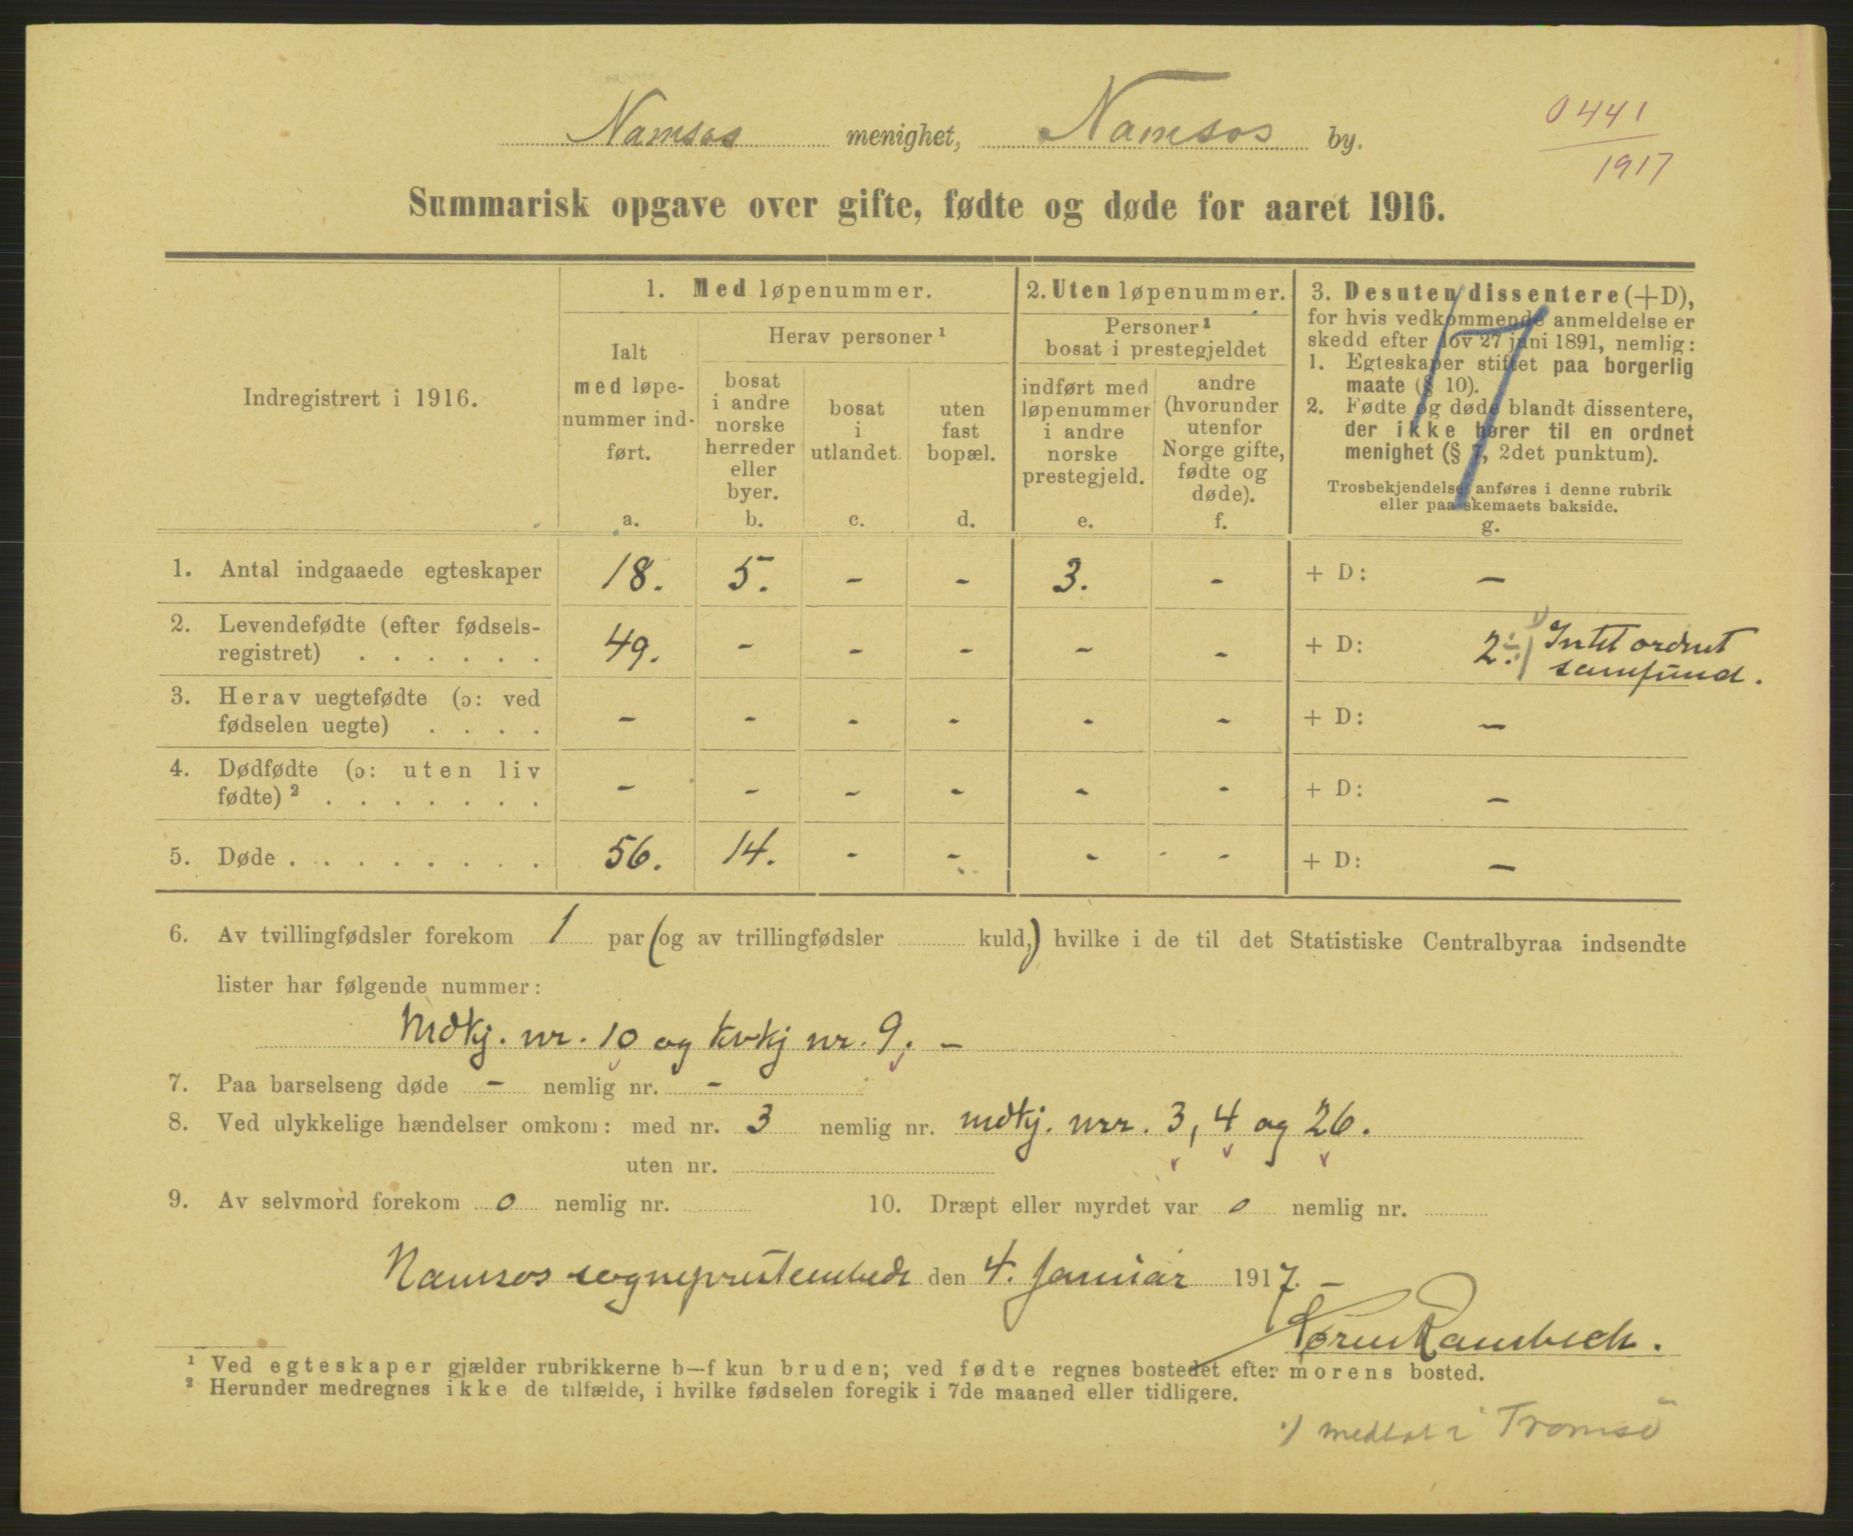 Namsos menighet, Namsos by.
0441
1917
Summarisk opgave over gifte, fødte og døde for aaret 1916.
Indregistrert i 1916.
1. Med løpenummer.
Ialt
med løpe-
nummer ind-
ført.
a.
Herav personer ¹
bosat
i andre
norske
herreder
eller
byer.
b.
bosat
i
utlandet.
c.
uten
fast
bopæl.
d.
2. Uten løpenummer.
Personer ¹
bosat i prestegjeldet
indført med
løpenummer
i andre
norske
prestegjeld.
e.
andre
(hvorunder
utenfor
Norge gifte,
fødte og
døde).
f.
3. Desuten dissentere (+D),
for hvis vedkommende anmeldelse er
skedd efter lov 27 juni 1891, nemlig:
1. Egteskaper stiftet paa borgerlig
maate (§ 10).
2. Fødte og døde blandt dissentere,
der ikke hører til en ordnet
menighet (§ 7, 2det punktum).
Trosbekjendelse anføres i denne rubrik
eller paa skemaets bakside.
g.
1. Antal indgaaede egteskaper 18. 5. - - 3. - + D: -
2. Levendefødte (efter fødsels-
registret) . . . . . . 49. - - - - - + D: 2 ÷ 1) Intet ordnet
samfund.
3. Herav uegtefødte (ɔ: ved
fødselen uegte) . . . . - - - - - - + D: -
4. Dødfødte (ɔ: uten liv
fødte) ² . . . . . . . - - - - - - + D: -
5. Døde . . . . . . . . 56. 14. - - - - + D: -
6. Av tvillingfødsler forekom 1 par (og av trillingfødsler kuld,) hvilke i de til det Statistiske Centralbyraa indsendte
lister har følgende nummer:
Mdkj. nr. 10 og kvkj nr. 9. -
7. Paa barselseng døde - nemlig nr. -
8. Ved ulykkelige hændelser omkom: med nr. 3 nemlig nr. mdkj. nrr. 3, 4 og 26.
uten nr.
9. Av selvmord forekom 0 nemlig nr. 10. Dræpt eller myrdet var 0 nemlig nr.
Namsos sogneprestembede den 4. Januar 1917. -
Søren Rambech.
¹ Ved egteskaper gjælder rubrikkerne b—f kun bruden; ved fødte regnes bostedet efter morens bosted.
² Herunder medregnes ikke de tilfælde, i hvilke fødselen foregik i 7de maaned eller tidligere.
1) medtat i Tromsö